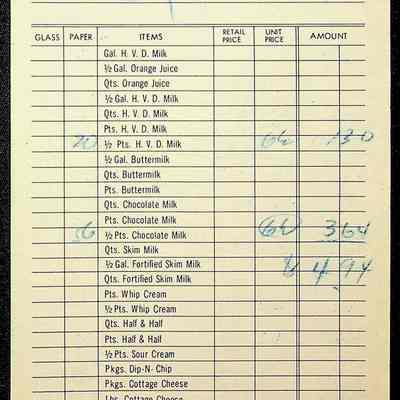 GLASS PAPER ITEMS RETAIL PRICE UNIT PRICE AMOUNT
Gal. H. V. D. Milk
½ Gal. Orange Juice
Qts. Orange Juice
½ Gal. H. V. D. Milk
Qts. H. V. D. Milk
Pts. H. V. D. Milk
20 ½ Pts. H. V. D. Milk 6½ 1 30
½ Gal. Buttermilk
Qts. Buttermilk
Pts. Buttermilk
Qts. Chocolate Milk
Pts. Chocolate Milk
56 ½ Pts. Chocolate Milk 6½ 3 64
Qts. Skim Milk
½ Gal. Fortified Skim Milk 4 94
Qts. Fortified Skim Milk
Pts. Whip Cream
½ Pts. Whip Cream
Qts. Half & Half
Pts. Half & Half
½ Pts. Sour Cream
Pkgs. Dip-N- Chip
Pkgs. Cottage Cheese
Lbs. Cottage Cheese